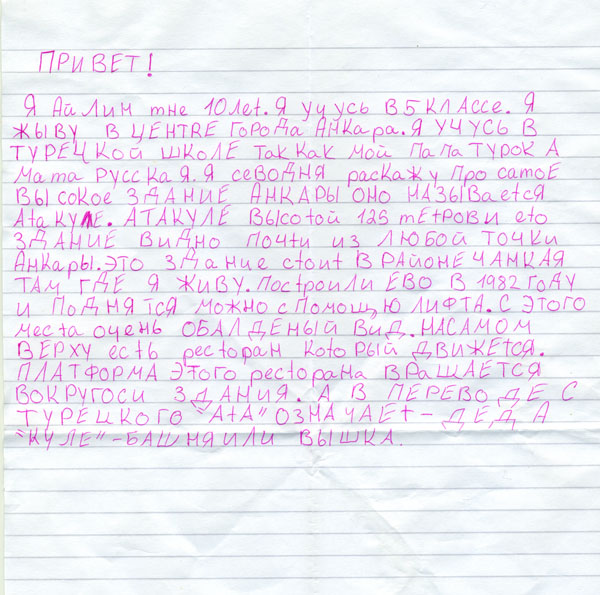 ПРИВЕТ!
Я Айлин мне 10 лet. Я учусь в 5 классе. Я
жыву в центRe города Анкара. Я учусь в
турецкой школе так как мой папа турок а
мата русская. Я севодня раскажу про самоЕ
высокое здание Анкары оно называеtся
Аtакуле. Атакуле высоtой 125 меtрови еtо
здание видно почtи из любой точки
Анкары. Это здание сtоиt в районе Чанкая
там где я живу. Построили ево в 1982 году
и поднятся можно с помощью лифта. С этого
месtа очень обалденый вид. Насамом
верху есtь ресtоран коtорый движеtся.
Платформа этого ресtорана врашается
вокругоси здания. А в переводе с
турецкого "Аtа" означаеt - дед а
"куле" - башня или вышка.